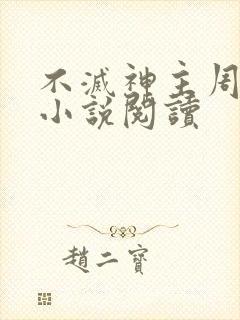 不滅神主周
小說閱讀
趙二寶